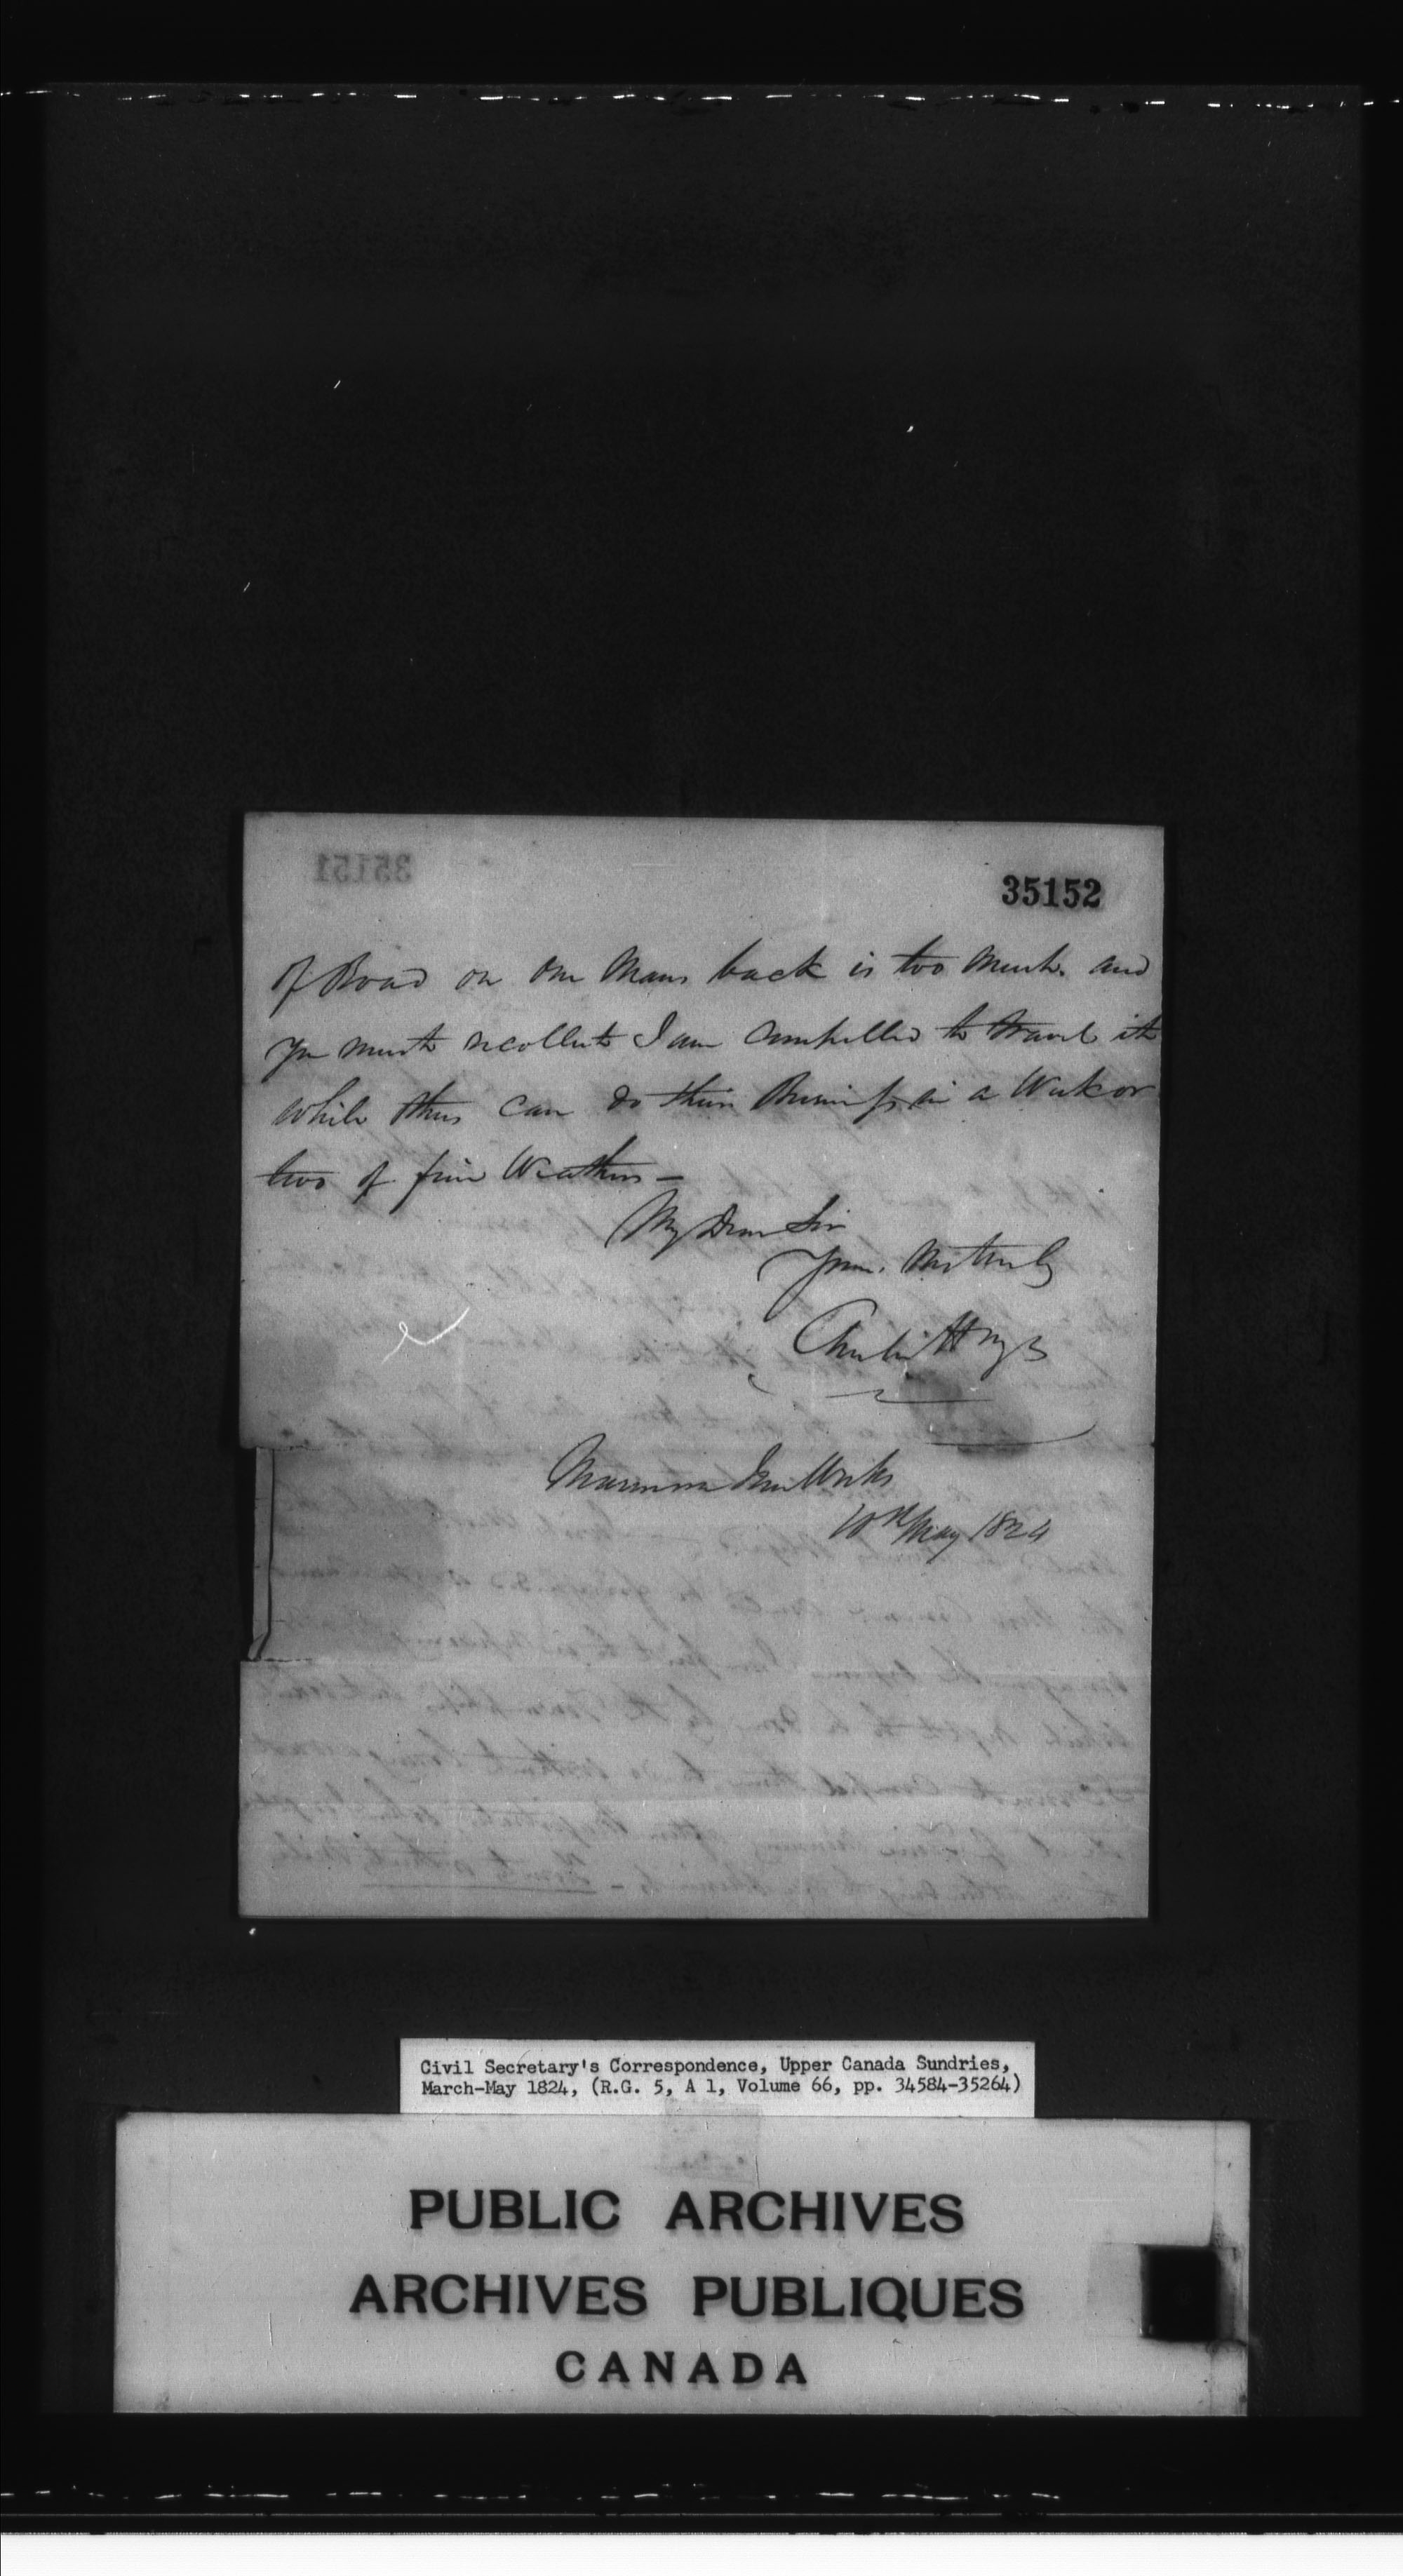 35151
35152
of Road on one Mans back is too much. and
you must recollect I am compelled to travel it
while they can do their Business in a Week or
two of fine Weather –
My Dear Sir
Yours Most truly
Charles Hayes
Marmora Iron Works
10th May 1824
Civil Secretary's Correspondence, Upper Canada Sundries,
March-May 1824, (R.G. 5, A 1, Volume 66, pp. 34584-35264)
PUBLIC ARCHIVES
ARCHIVES PUBLIQUES
CANADA